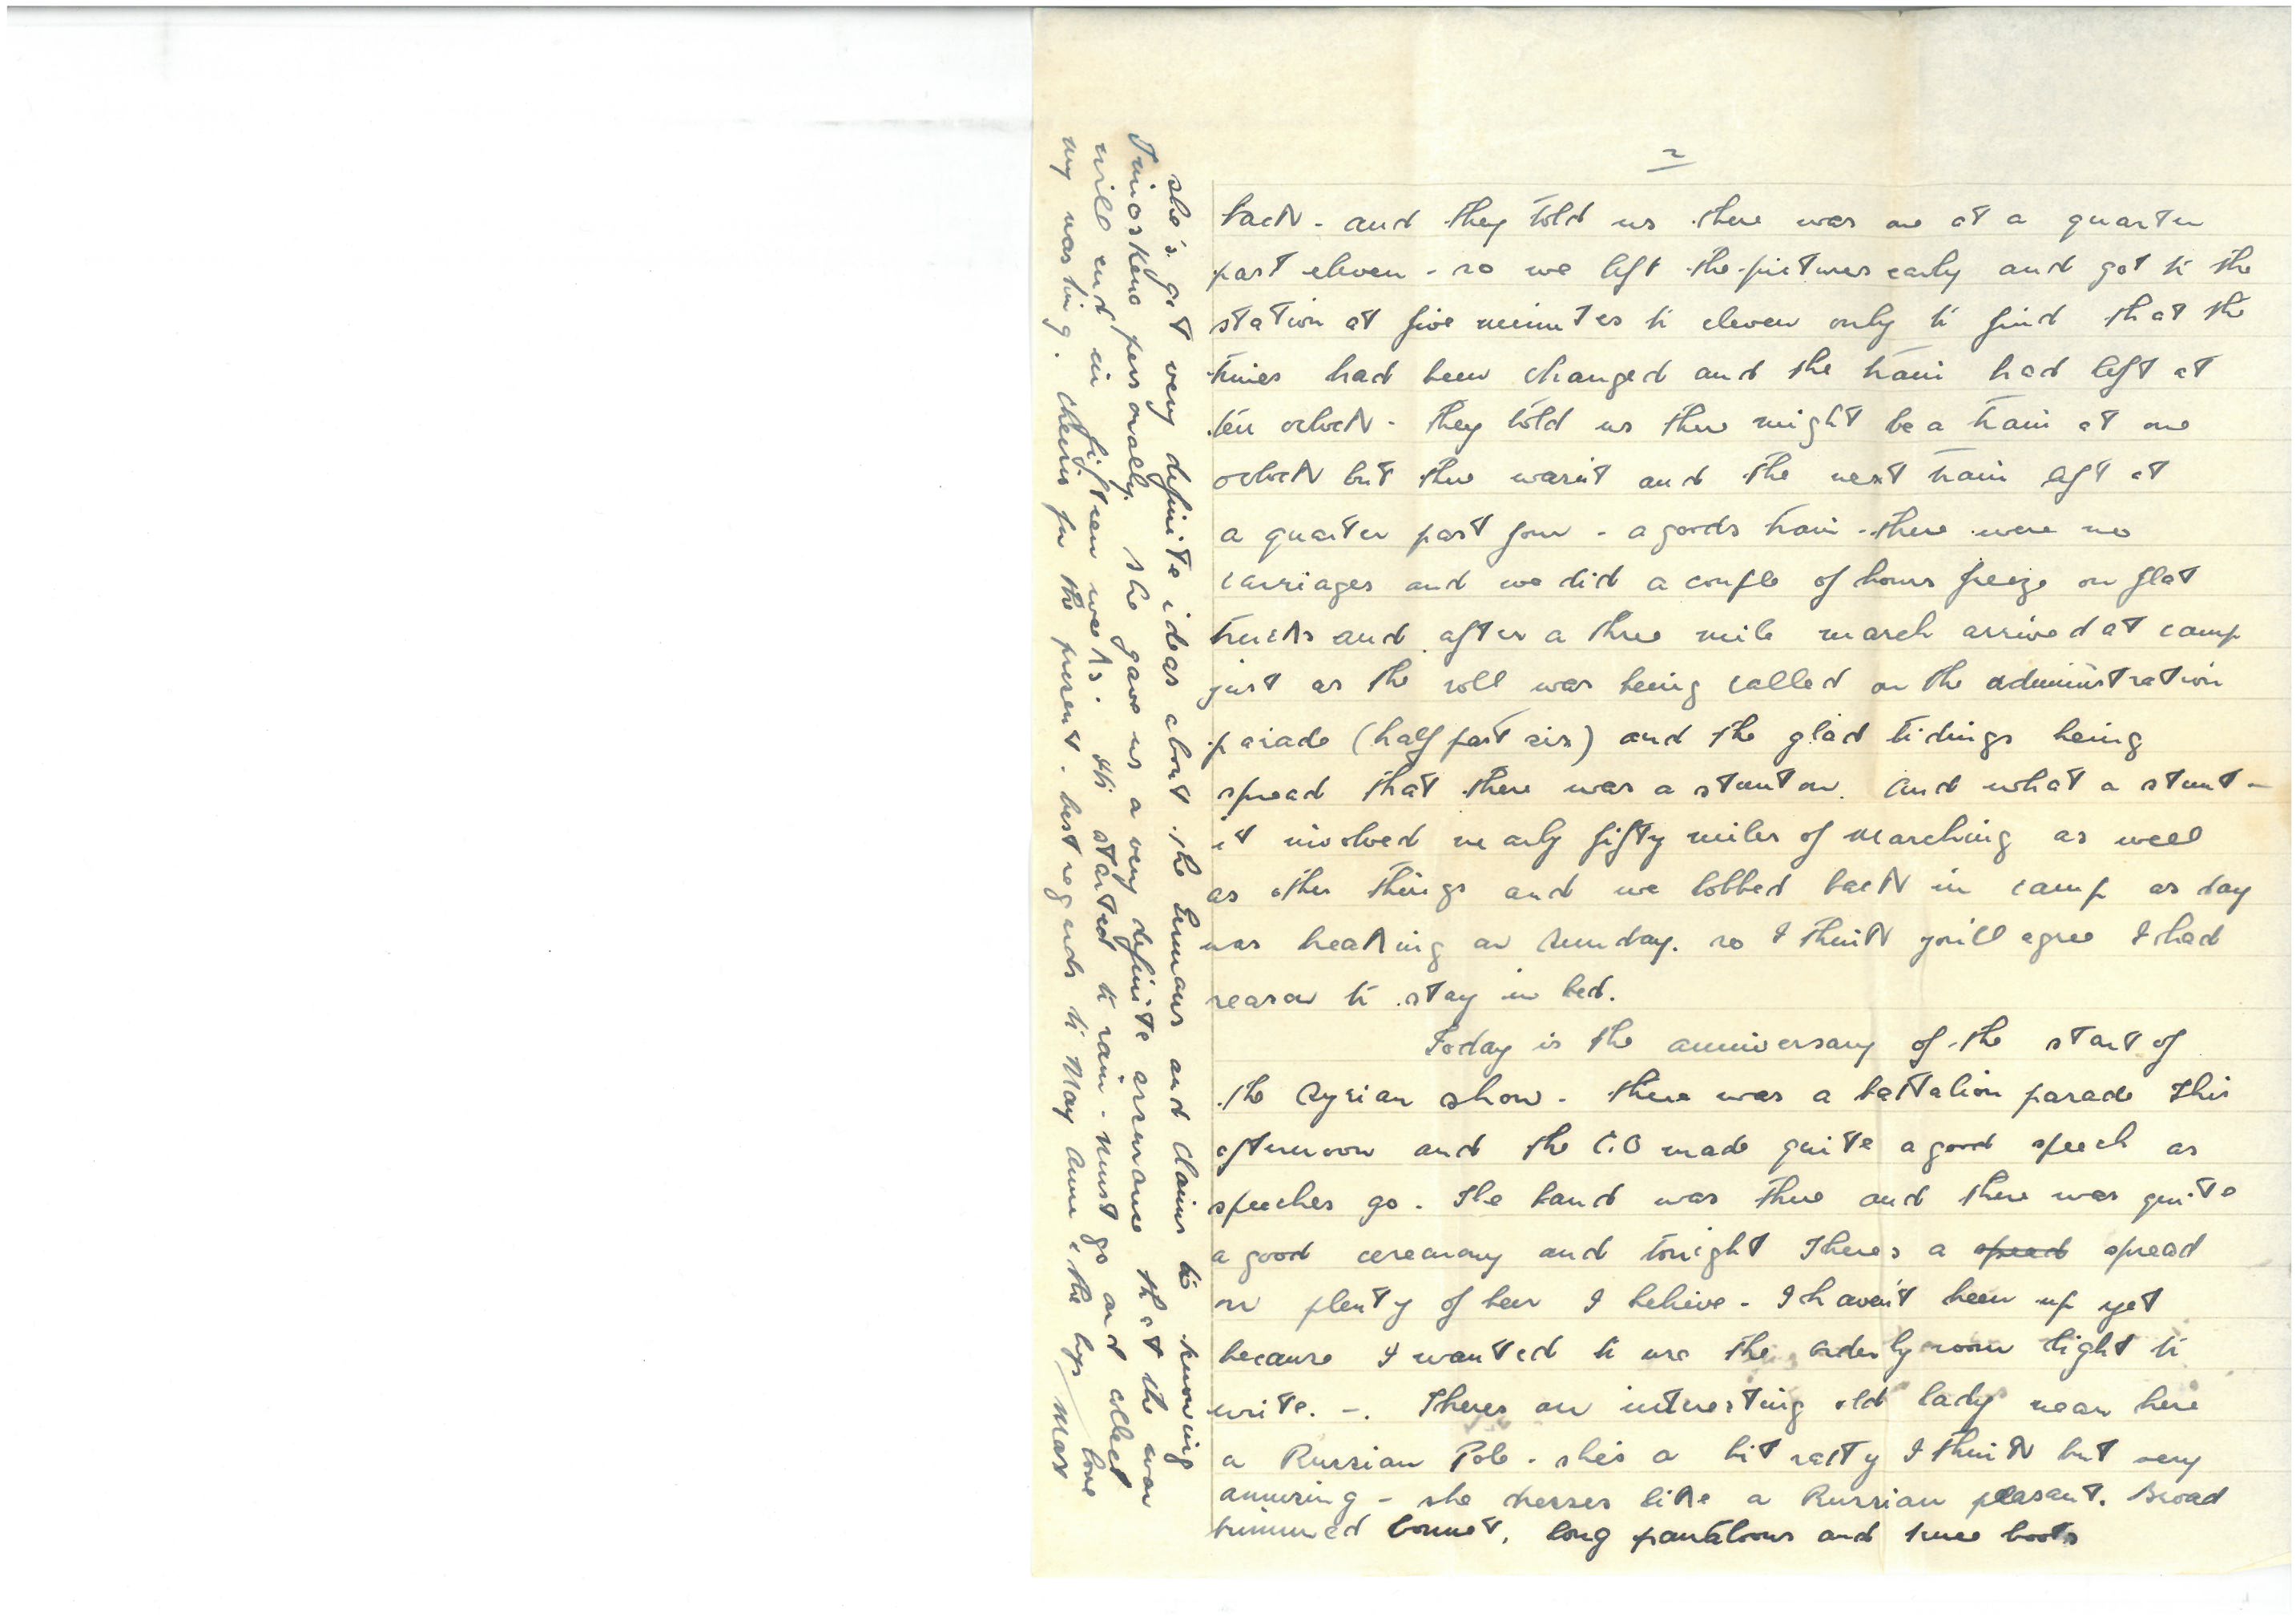 2
back - and they told us there was one at a quarter
past eleven - so we left the pictures early and got to the
station at five minutes to eleven only to find that the
times had been changed and the train had left at
ten oclock - they told us there might be a train at one
oclock but there wasn't and the next train left at
a quarter past four - a goods train - there were no
carriages and we did a couple of hours freeze on flat
trucks and after a three mile march arrived at camp
just as the roll was being called on the administration
parade (half past six) and the glad tidings being
spread that there was a stunt on. And what a stunt -
it involved nearly fifty miles of marching as well
as other things and we lobbed back in camp as day
was breaking on Sunday. so I think you'll agree I had
reason to stay in bed.
Today is the anniversary of the start of
the Syrian show. There was a battalion parade this
afternoon and the C.O made quite a good speech as
speeches go. The band was there and there was quite
a good ceremony and tonight theres a spead spread
on plenty of beer I believe - I haven't been up yet
because I wanted to use the orderly room light to
write. -. Theres an interesting old lady near here
a Russian Pole - she's a bit ratty I think but very
amusing - she dresses like a Russian peasant. Broad
brimmed bonnet, long pantaloons and knee boots
she's got very definite ideas about the Germans and claims to knowing
Timoskenko personally. she gave us a very definite assurance that the war
will end in fifteen weeks. It's started to rain - must go and collect
my washing. Cheerio for the present. best regards to May Anne & the boys love
Max